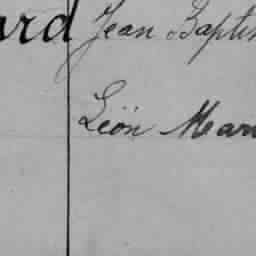 ard Jean Baptis
Léon Mar